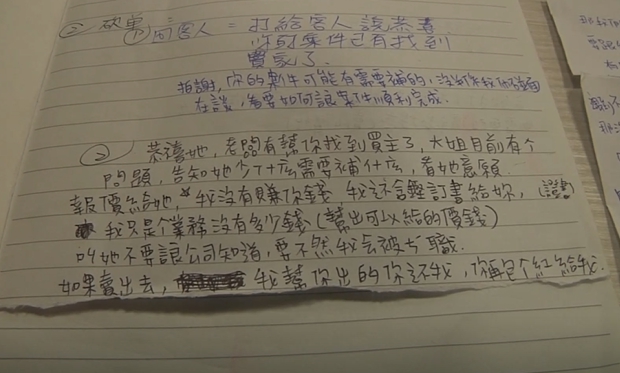 ② 砍單：
① 問客人 = 打給客人說恭喜
你的案件已有找到
買家了.
抱謝，你的案件可能有需要補的，沒
在談，看要如何讓案件順利完成.
② 恭禧她，老闆有幫你找到買主了，大姐目前有个
問題，告知她少什庅需要補什庅，看她意願.
報價給她，*我沒有賺你錢 我还會
訂書給妳，(證書)
我只是个業務沒有多少錢(幫出可以給的價錢)
叫她不要讓公司知道，要不然我会被 職.
如果賣出去， 我幫你出的你还我，你再包个紅給我.